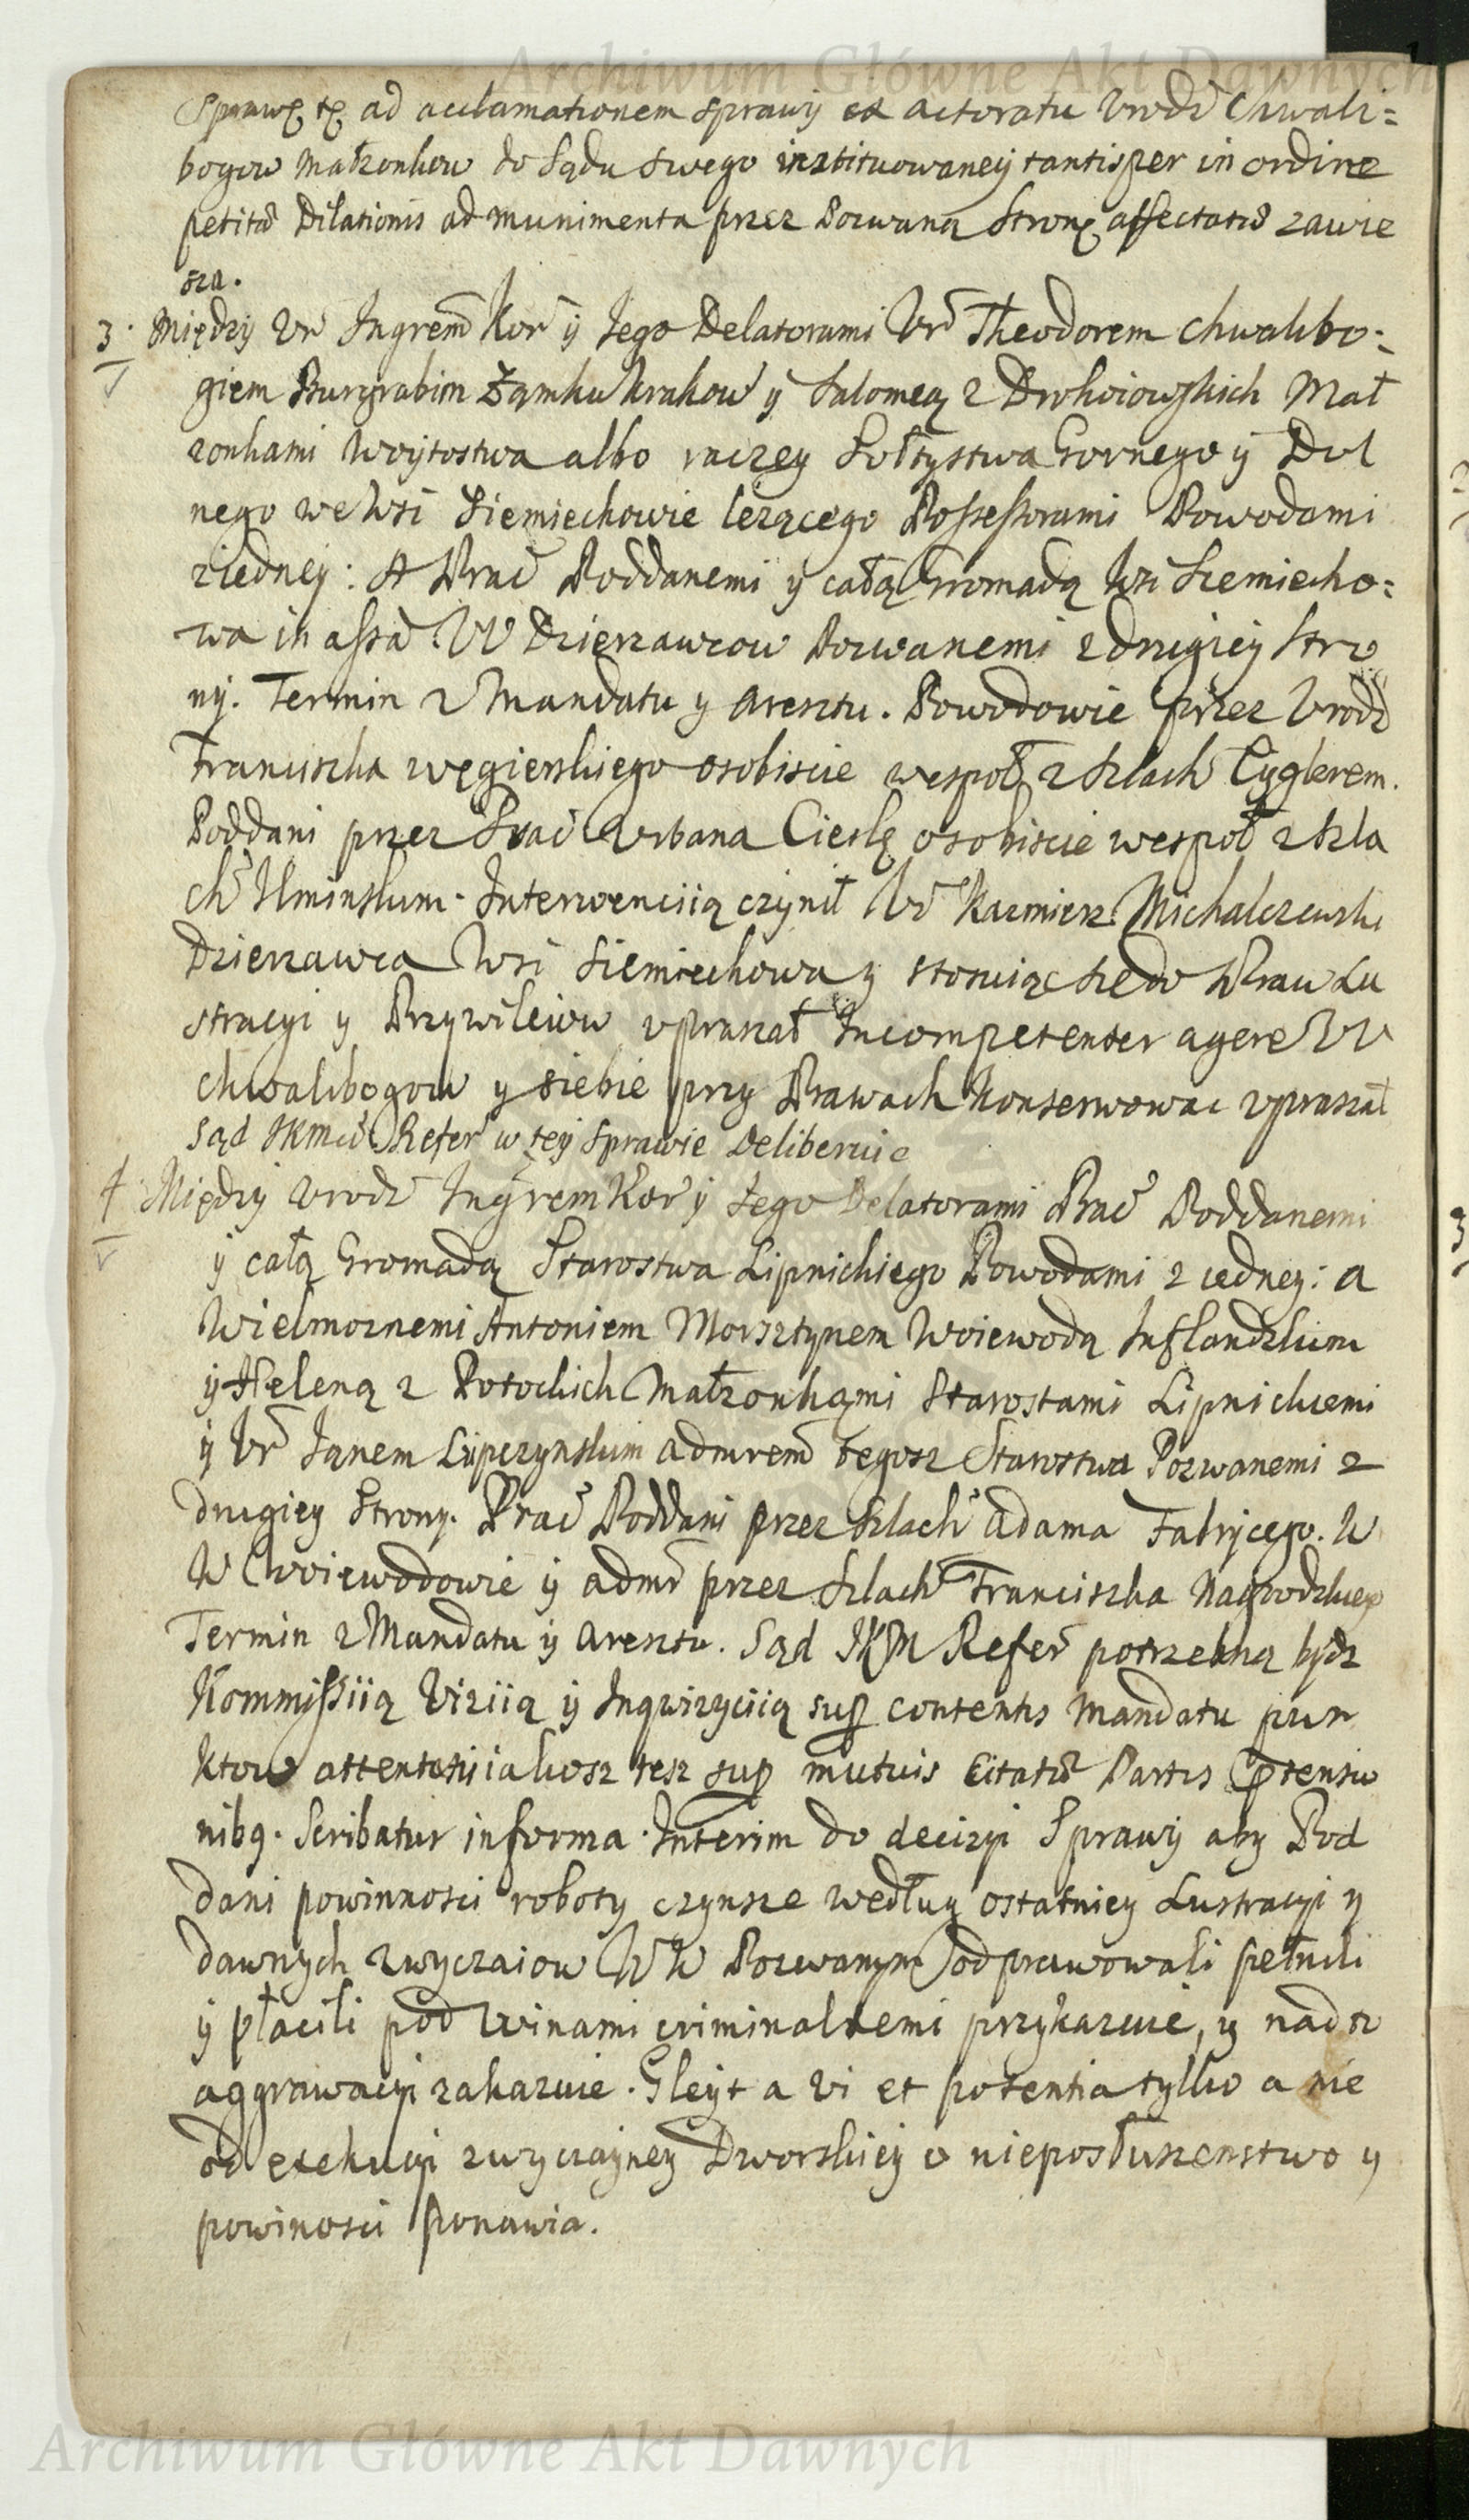 Archiwum Główne Akt Dawnych
Sprawę tę ad acclamationem sprawy ex actoratu Urodź Chwali=
bogow Małzonkow do Sądu swego instituowaney tantisper in ordine
petitæ Dilationis ad munimenta przez Pozwaną Stronę affectatæ zawie
sza.
3. Między Ur Ingrem Kor y Jego Delatorami Ur Theodorem Chwalibo=
giem Burgrabim Zamku Krakow y Salomeą z Drohoiowskich Mał
zonkami Woytostwa albo raczey Sołtystwa Gornego y Dol
nego we Wsi Siemiechowie lezącego Possessorami Powodami
ziedney: A Prac Poddanemi y całą Gromadą Wsi Siemiecho=
wa in assā W Dzierzawcow Pozwanemi z drugiey Stro
ny. Termin z Mandatu y Aresztu. Powodowie przez Urodź
Franciszka Węgierskiego osobiscie wespoł z Szlach Cyglerem.
Poddani przez Prac Urbana Cieslę osobiscie wespoł z Szla
ch Uminskim. Interwenciią czynił Ur Kazmierz Michalczewski
Dzierzawca Wsi Siemiechowa y stosuiąc się do Praw Lu
stracyi y Przywileiow upraszał Incompetenter agere W
Chwalibogow y siebie przy Prawach Konserwowac upraszał
Sąd JKMci Refer w tey sprawie Deliberuie
4 Między Urodź Ingrem Kor y Jego Delatorami Prac Poddanemi
y całą Gromadą Starostwa Lipnickiego Powodami z iedney: a
Wielmoznemi Antoniem Morsztynem Woiewodą Inflandzkim
y Heleną z Potockich Małzonkami Starostami Lipnickiemi
y Ur Janem Lipczynskim Admrem tegosz Starostwa Pozwanemi z
drugiey Strony. Prac Poddani przez Szlach Adama Fabrycego. W
W Woiewodowie y Admr przez Szlach Franciszka Nagrodzkieg
Termin z Mandatu y Aresztu. Sąd JKM Refer potrzebną bydz
Kommissiią Viziią y Inqwizyciią sup contentis Mandatu pun
ktow attentatis iakosz tesz sup mutuis Citatæ Partis Prtensio
nibq. Scribatur in forma. Interim do decizyi Sprawy aby Pod
dani powinnosci roboty czynsze według ostatniey Lustracyi y
dawnych zwyczaiow W W Pozwanym odprawowali pełnili
y płacili pod winami criminalnemi przykazuie, y nad to
aggrawacyi zakazuie. Gleyt a vi et potentia tylko a nie
od exekucyi zwyczayney Dworskiey o nieposłuszenstwo y
powinosci ponawia.
Archiwum Główne Akt Dawnych